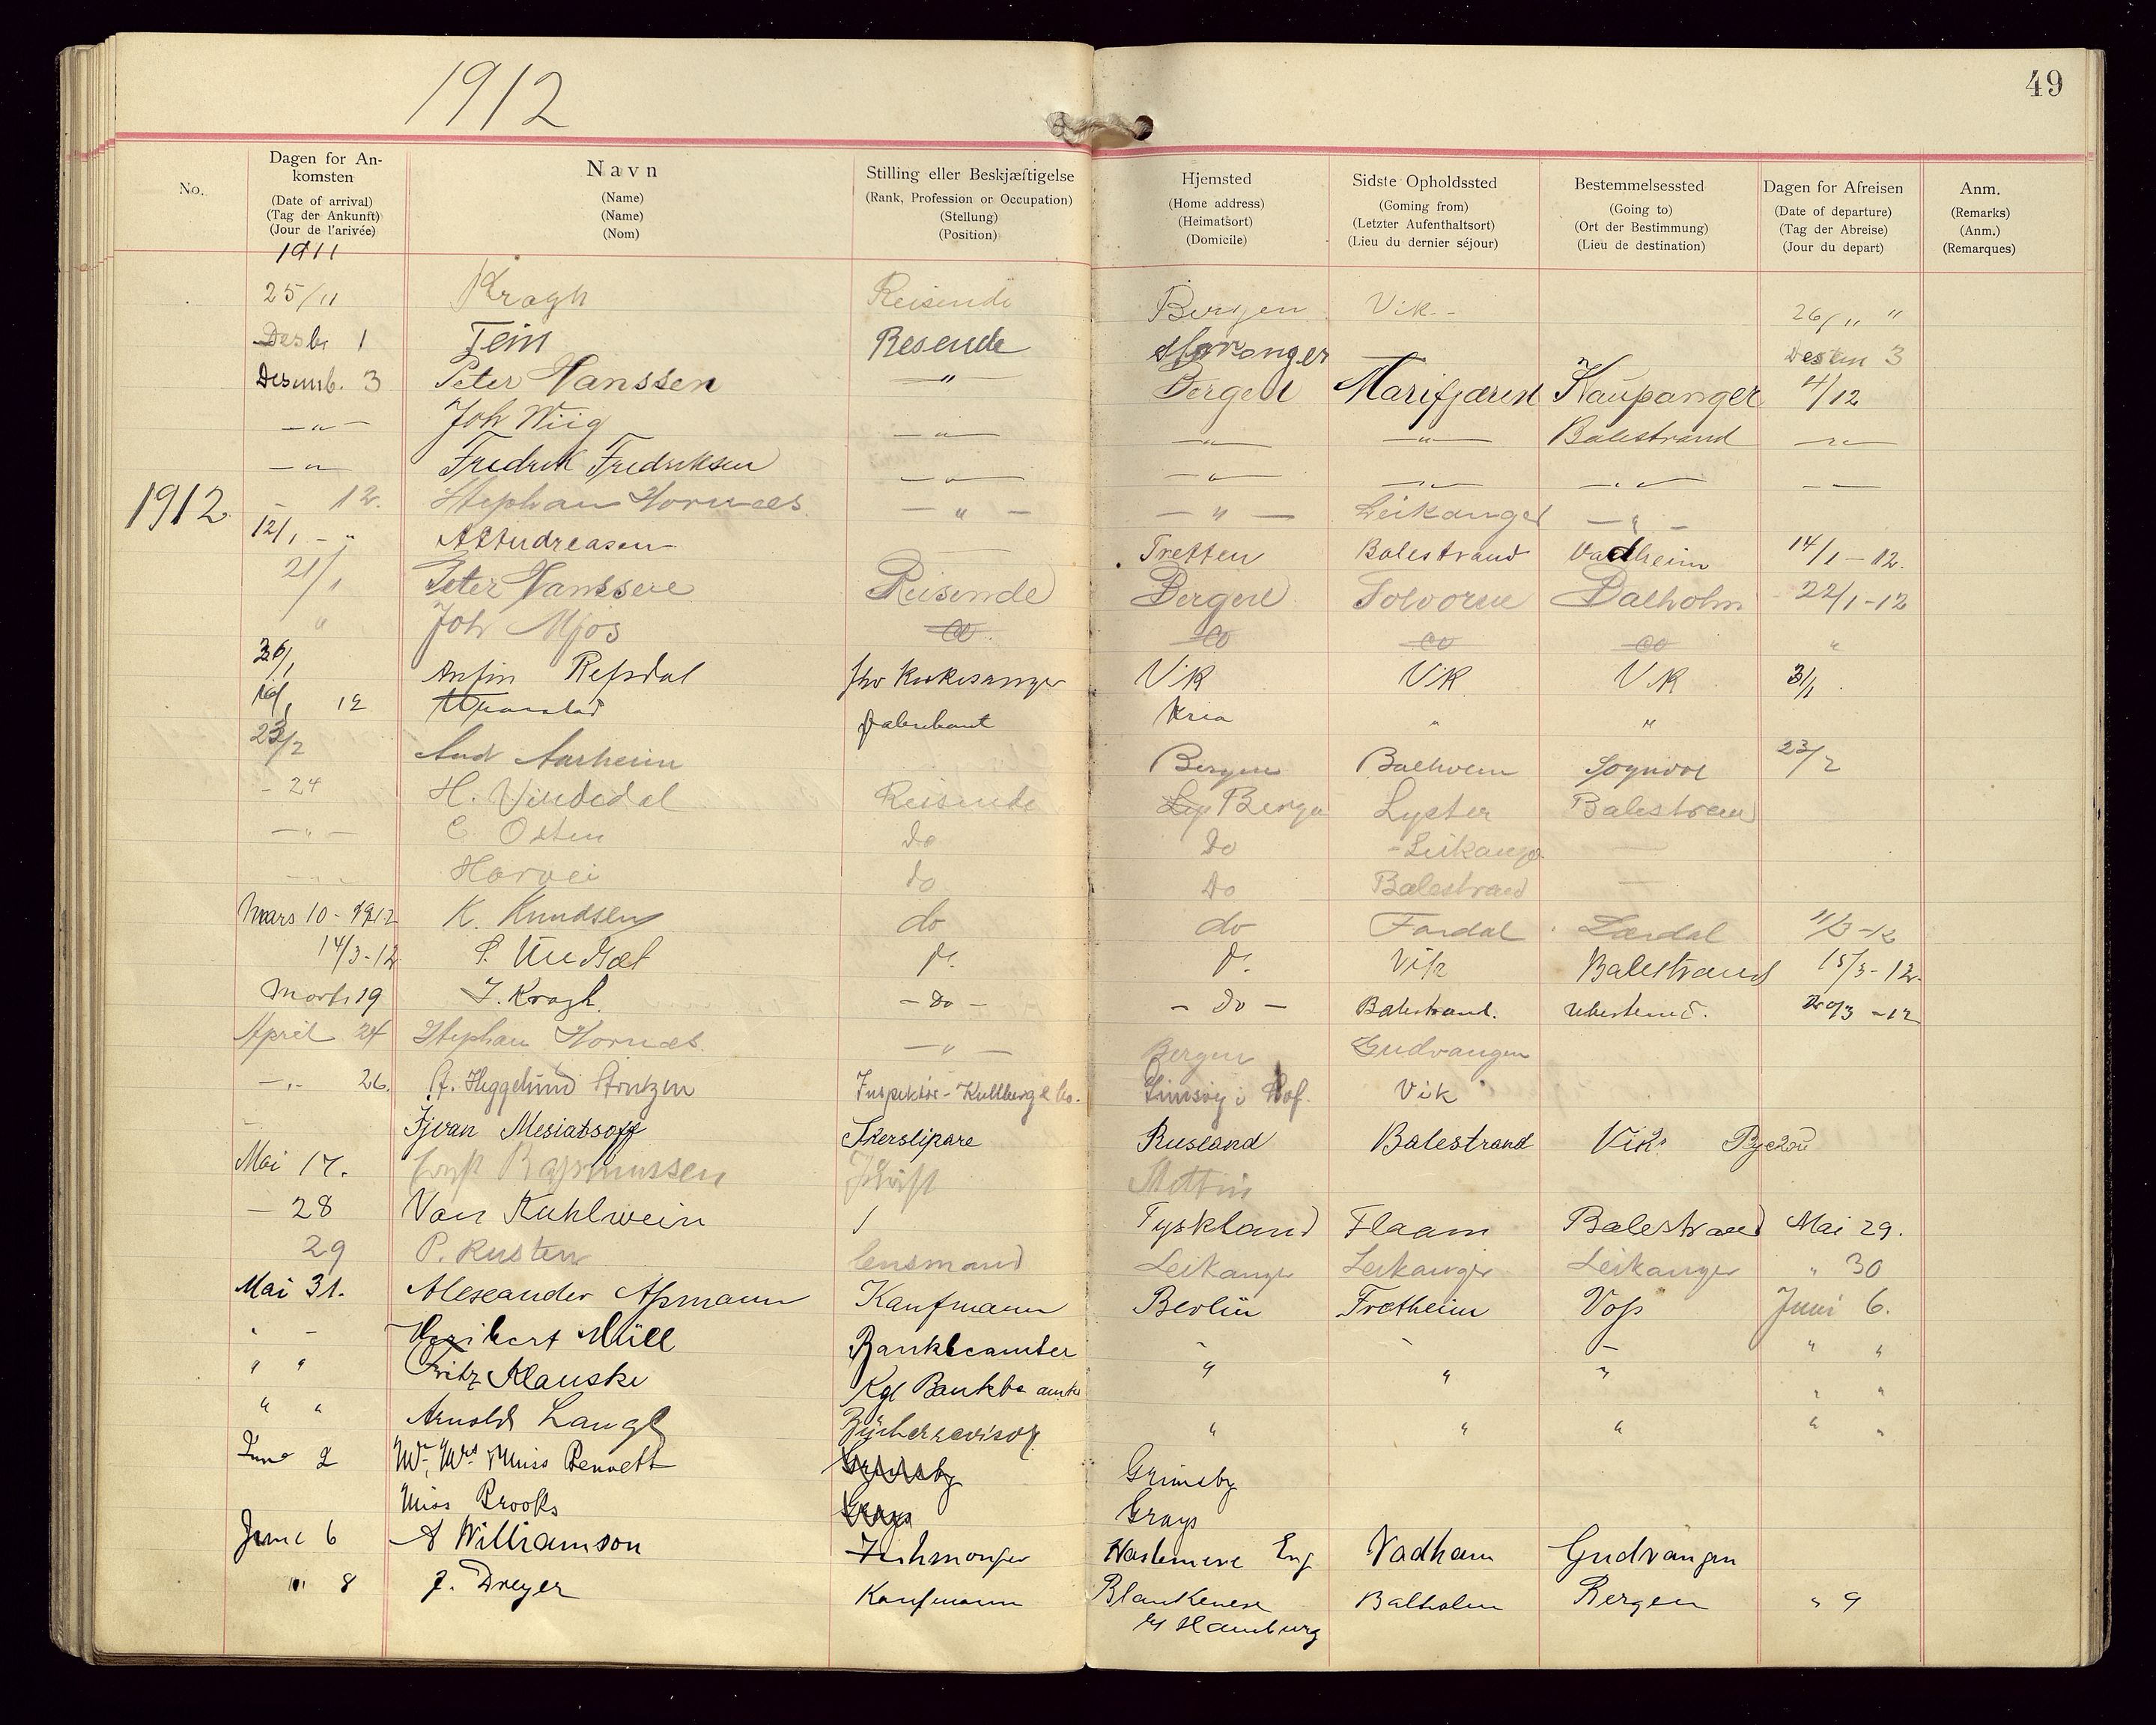 1912
49
No.
Dagen for An-
komsten
(Date of arrival)
(Tag der Ankunft)
(Jour de l'arivée)
Navn
(Name)
(Name)
(Nom)
Stilling eller Beskjæftigelse
(Rank, Profession or Occupation)
(Stellung)
(Position)
Hjemsted
(Home address)
(Heimatsort)
(Domicile)
Sidste Opholdssted
(Coming from)
(Letzter Aufenthaltsort)
(Lieu du dernier séjour)
Bestemmelsessted
(Going to)
(Ort der Bestimmung)
(Lieu de destination)
Dagen for Afreisen
(Date of departure)
(Tag der Abreise)
(Jour du depart)
Anm.
(Remarks)
(Anm.)
(Remarques)
1911
25/11 Kragh Reisende Bergen Vik 26/11 "
Desbr 1 Tein Resende Desem 3
Desemb. 3 Peter Hanssen — " — Bergen Marifjæren Kaupanger 4/12
— " — Joh Wiig — " — — " — — " — Balestrand — " —
— " — Fredrik Fredriksen — " — — " — — " — — " — — —
1912
- 12. Stephan Hornæs — " — — " — Leikanger — " —
12/1 - " Andreasen Tretten Balestrand Vadheim 14/1 - 12.
21/1 Peter Hanssen Reisende Bergen Solvorn Balholm 22/1 - 12
" Joh Mjøs do do do do "
Anfin Refsdal Vik Vik Vik 3/1
12 Kria " "
23/2 And Aarheim Bergen Balholm Sogndal 23/2
- 24 H. Vindedal Reisende Bergen Lyster Balestrand
— " — C. Osten do Do Leikanger —
Harvei do Do Balestrand —
Mars 10 - 1912 K. Knudsen do do Fardal Lærdal 11/3 - 12
14/3 - 12 Vik Balestrand 15/3 - 12
Marts 19 J. Kragh. - Do - - Do - Balestrand. Ubestemt. 20/3 - 12
April 24 Stephan Hornæs. — " — Bergen Gudvangen
— " — 26. Heggelund Arntzen Inspektør - Kullberg & Co. i Hof. Vik
Fjvan Mesiatsoff Skerslipare Rusland Balestrand Vik.
Mai 17. Rasmussen Stettin
- 28 Von Kuhlwein / Tyskland Flaam Balestrand Mai 29.
29 P. Rusten lensmand Leikanger Leikanger Leikanger " 30
Mai 31. Alexander Assmann Kaufmann Berlin Fretheim Voss Juni 6.
" - Heribert Müll Bankbeamter - - - " "
" " Fritz Klauske Kgl Bankbeamter " " " " "
" " Arnold Langl Bücherrevisor " " " " "
June 2 Mr, Mrs & Miss Bennett Grimsby Grimsby
Miss Brooks Grays Grays
June 6 A Williamson Fishmonger Haslemere Eng Vadham Gudvangen
" 8 J. Dreyer Kaufmann Blankenese Balholm Bergen " 9
b/ Hamburg